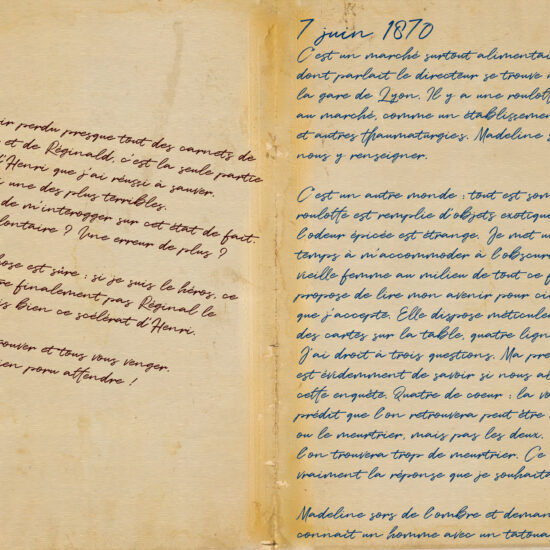 ir perdu presque tout des carnets de
et de Réginald, c'est la seule partie
d'Henri que j'ai réussi à sauver.
une des plus terribles.
de m'interogger sur cet état de fait.
lontaire ? Une erreur de plus ?
hose est sûre : si je suis le héros, ce
re finalement pas Réginal le
is bien ce scélérat d'Henri.
rouver et tous vous venger.
ien poru attendre !
7 juin 1870
C'est un marché surtout alimentai
dont parlait le directeur se trouve
la gare de Lyon. Il y a une roulott
au marché, comme un établisseme
et autres thaumaturgies. Madeline s
nous y renseigner.
C'est un autre monde : tout est som
roulotte est remplie d'objets exotiqu
l'odeur épicée est étrange. Je met u
temps à m'accommoder à l'obscur
vieille femme au milieu de tout ce f
propose de lire mon avenir pour ci
que j'accepte. Elle dispose méticule
des cartes sur la table, quatre lign
J'ai droit à trois questions. Ma pre
est évidemment de savoir si nous al
cette enquête. Quatre de coeur : la vo
prédit que l'on retrouvera peut être
ou le meurtrier, mais pas les deux.
l'on trouvera trop de meurtrier. Ce
vraiment la réponse que je souhait
Madeline sors de l'ombre et deman
connait un homme avec un tatoua